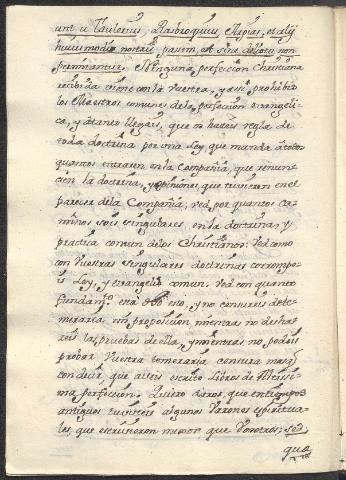 unt u Taulerius, Rusbroquius, Harpias, et alij
huius modi notari passim, et sine delectu non
permittantur. Ninguna perfeccion christiana
recibida viene con la vuestra, y assi prohibis
los Maestros comunes de la perfeccion evangeli-
ca, y a tanto llegais, que os haveis regla de
toda doctrina por una Ley, que manda a todos
quantos entraren en la Compañia, que renun-
cien la doctrina, y opiniones, que tuvieren en el
parecer de la Compañia; ved, por quantos ca-
minos sois singulares en la doctrina, y
practica comun de los Christianos: Ved como
con vuestras singulares doctrinas corrompe-
is Ley, y evangelio comun. Ved con quanto
fundam.to está esto, y no censureis de te-
meraria mi proposicion, mientras no desha-
reis las pruebas de ella, y mientras no podeis
probar vuestra temeraria censura mas
con decir, que aveis escrito Libros de
ma perfeccion. Quiero daros, que en tiempos
antiguos tuvisteis algunos Varones espiritua-
les, que escrivieron mejor que vosotros: sed
que